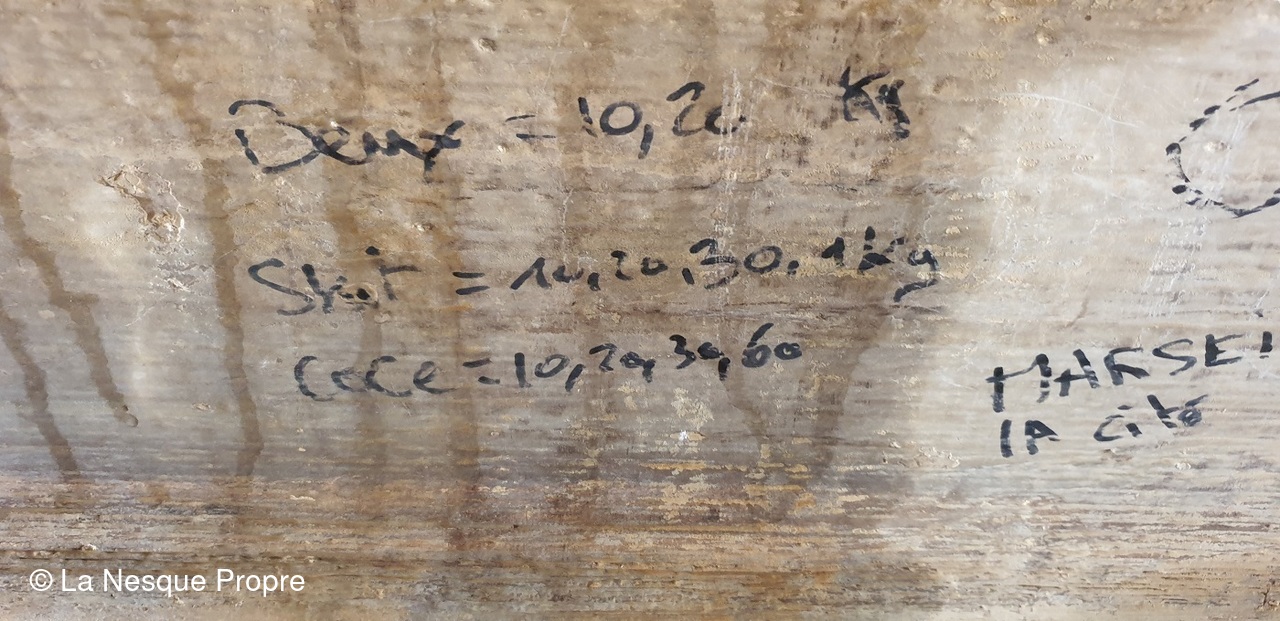 Beux = 10,20 Kg
Shit = 10,20,30,1Kg
CoCe = 10,20,30,60
MARSEI
LA Cité
© La Nesque Propre